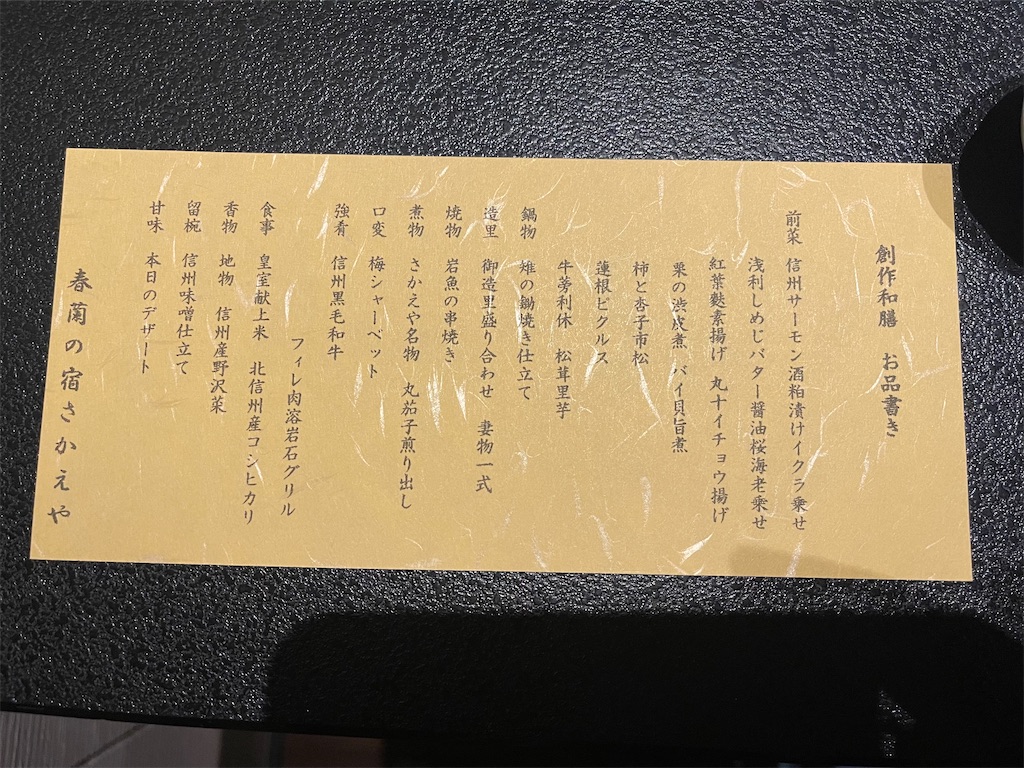 創作和膳 お品書き
前菜 信州サーモン酒粕漬けイクラ乗せ
浅利しめじバター醤油桜海老乗せ
紅葉麩素揚げ 丸十イチョウ揚げ
栗の渋皮煮 バイ貝旨煮
柿と杏子市松
蓮根ピクルス
牛蒡利休 松茸里芋
鍋物 雉の鋤焼き仕立て
造里 御造里盛り合わせ 妻物一式
焼物 岩魚の串焼き
煮物 さかえや名物 丸茄子煎り出し
口変 梅シャーベット
強肴 信州黒毛和牛
フィレ肉溶岩石グリル
食事 皇室献上米 北信州産コシヒカリ
香物 地物 信州産野沢菜
留椀 信州味噌仕立て
甘味 本日のデザート
春蘭の宿さかえや